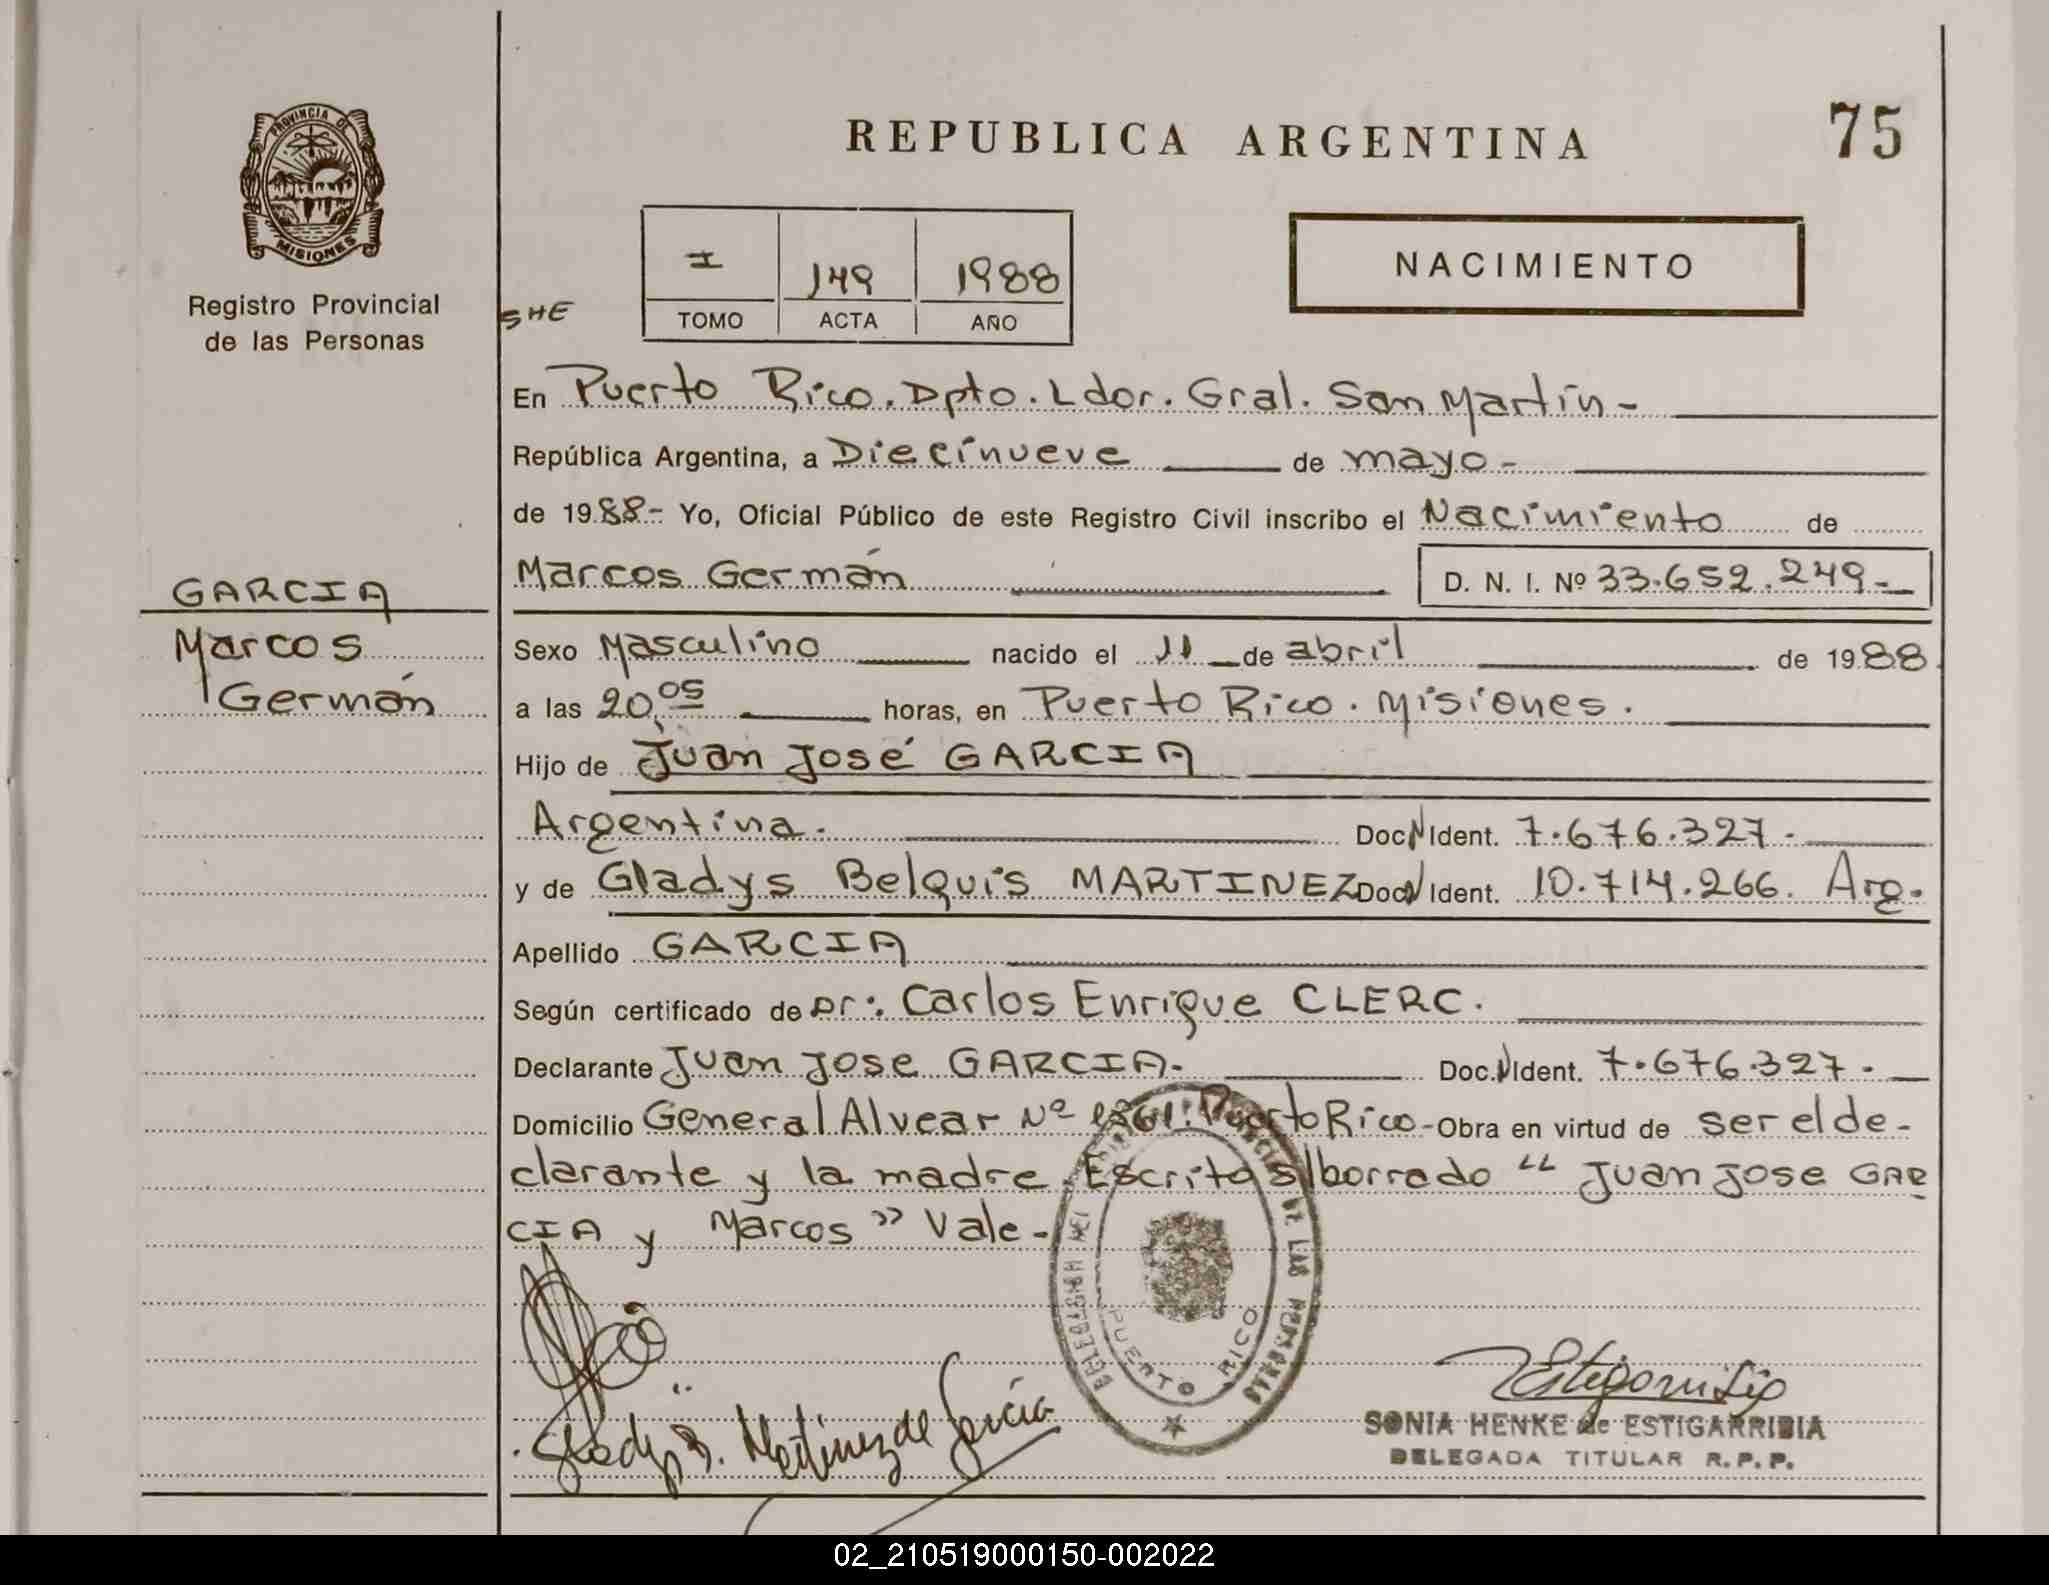 PROVINCIA DE
MISIONES
Registro Provincial
de las Personas
REPUBLICA ARGENTINA
75
I 149 1988
TOMO ACTA AÑO
NACIMIENTO
SHE
En Puerto Rico. Dpto. Ldor. Gral. San Martín -
República Argentina, a Diecinueve de mayo -
de 1988- Yo, Oficial Público de este Registro Civil inscribo el Nacimiento de
Marcos Germán D. N. I. Nº 33.652.249.-
GARCIA
Marcos
Germán
Sexo Masculino nacido el 11 de abril de 1988
a las 20,05 horas, en Puerto Rico. Misiones.
Hijo de Juan José GARCIA
Argentina. Doc N Ident. 7.676.327.
y de Gladys Belquis MARTINEZ Doc N Ident. 10.714.266. Arg.
Apellido GARCIA
Según certificado de Dr: Carlos Enrique CLERC.
Declarante Juan Jose GARCIA. Doc. N Ident. 7.676.327.
Domicilio General Alvear Nº Puerto Rico - Obra en virtud de ser el de-
clarante y la madre Escrito s/borrado “ Juan Jose GAR
CIA y Marcos ” Vale -
DELEGACION DEL DE LAS PERSONAS
PUERTO RICO
Gladys B. Martinez de Garcia
Estigarribia
SONIA HENKE de ESTIGARRIBIA
DELEGADA TITULAR R.P.P.
02_210519000150-002022